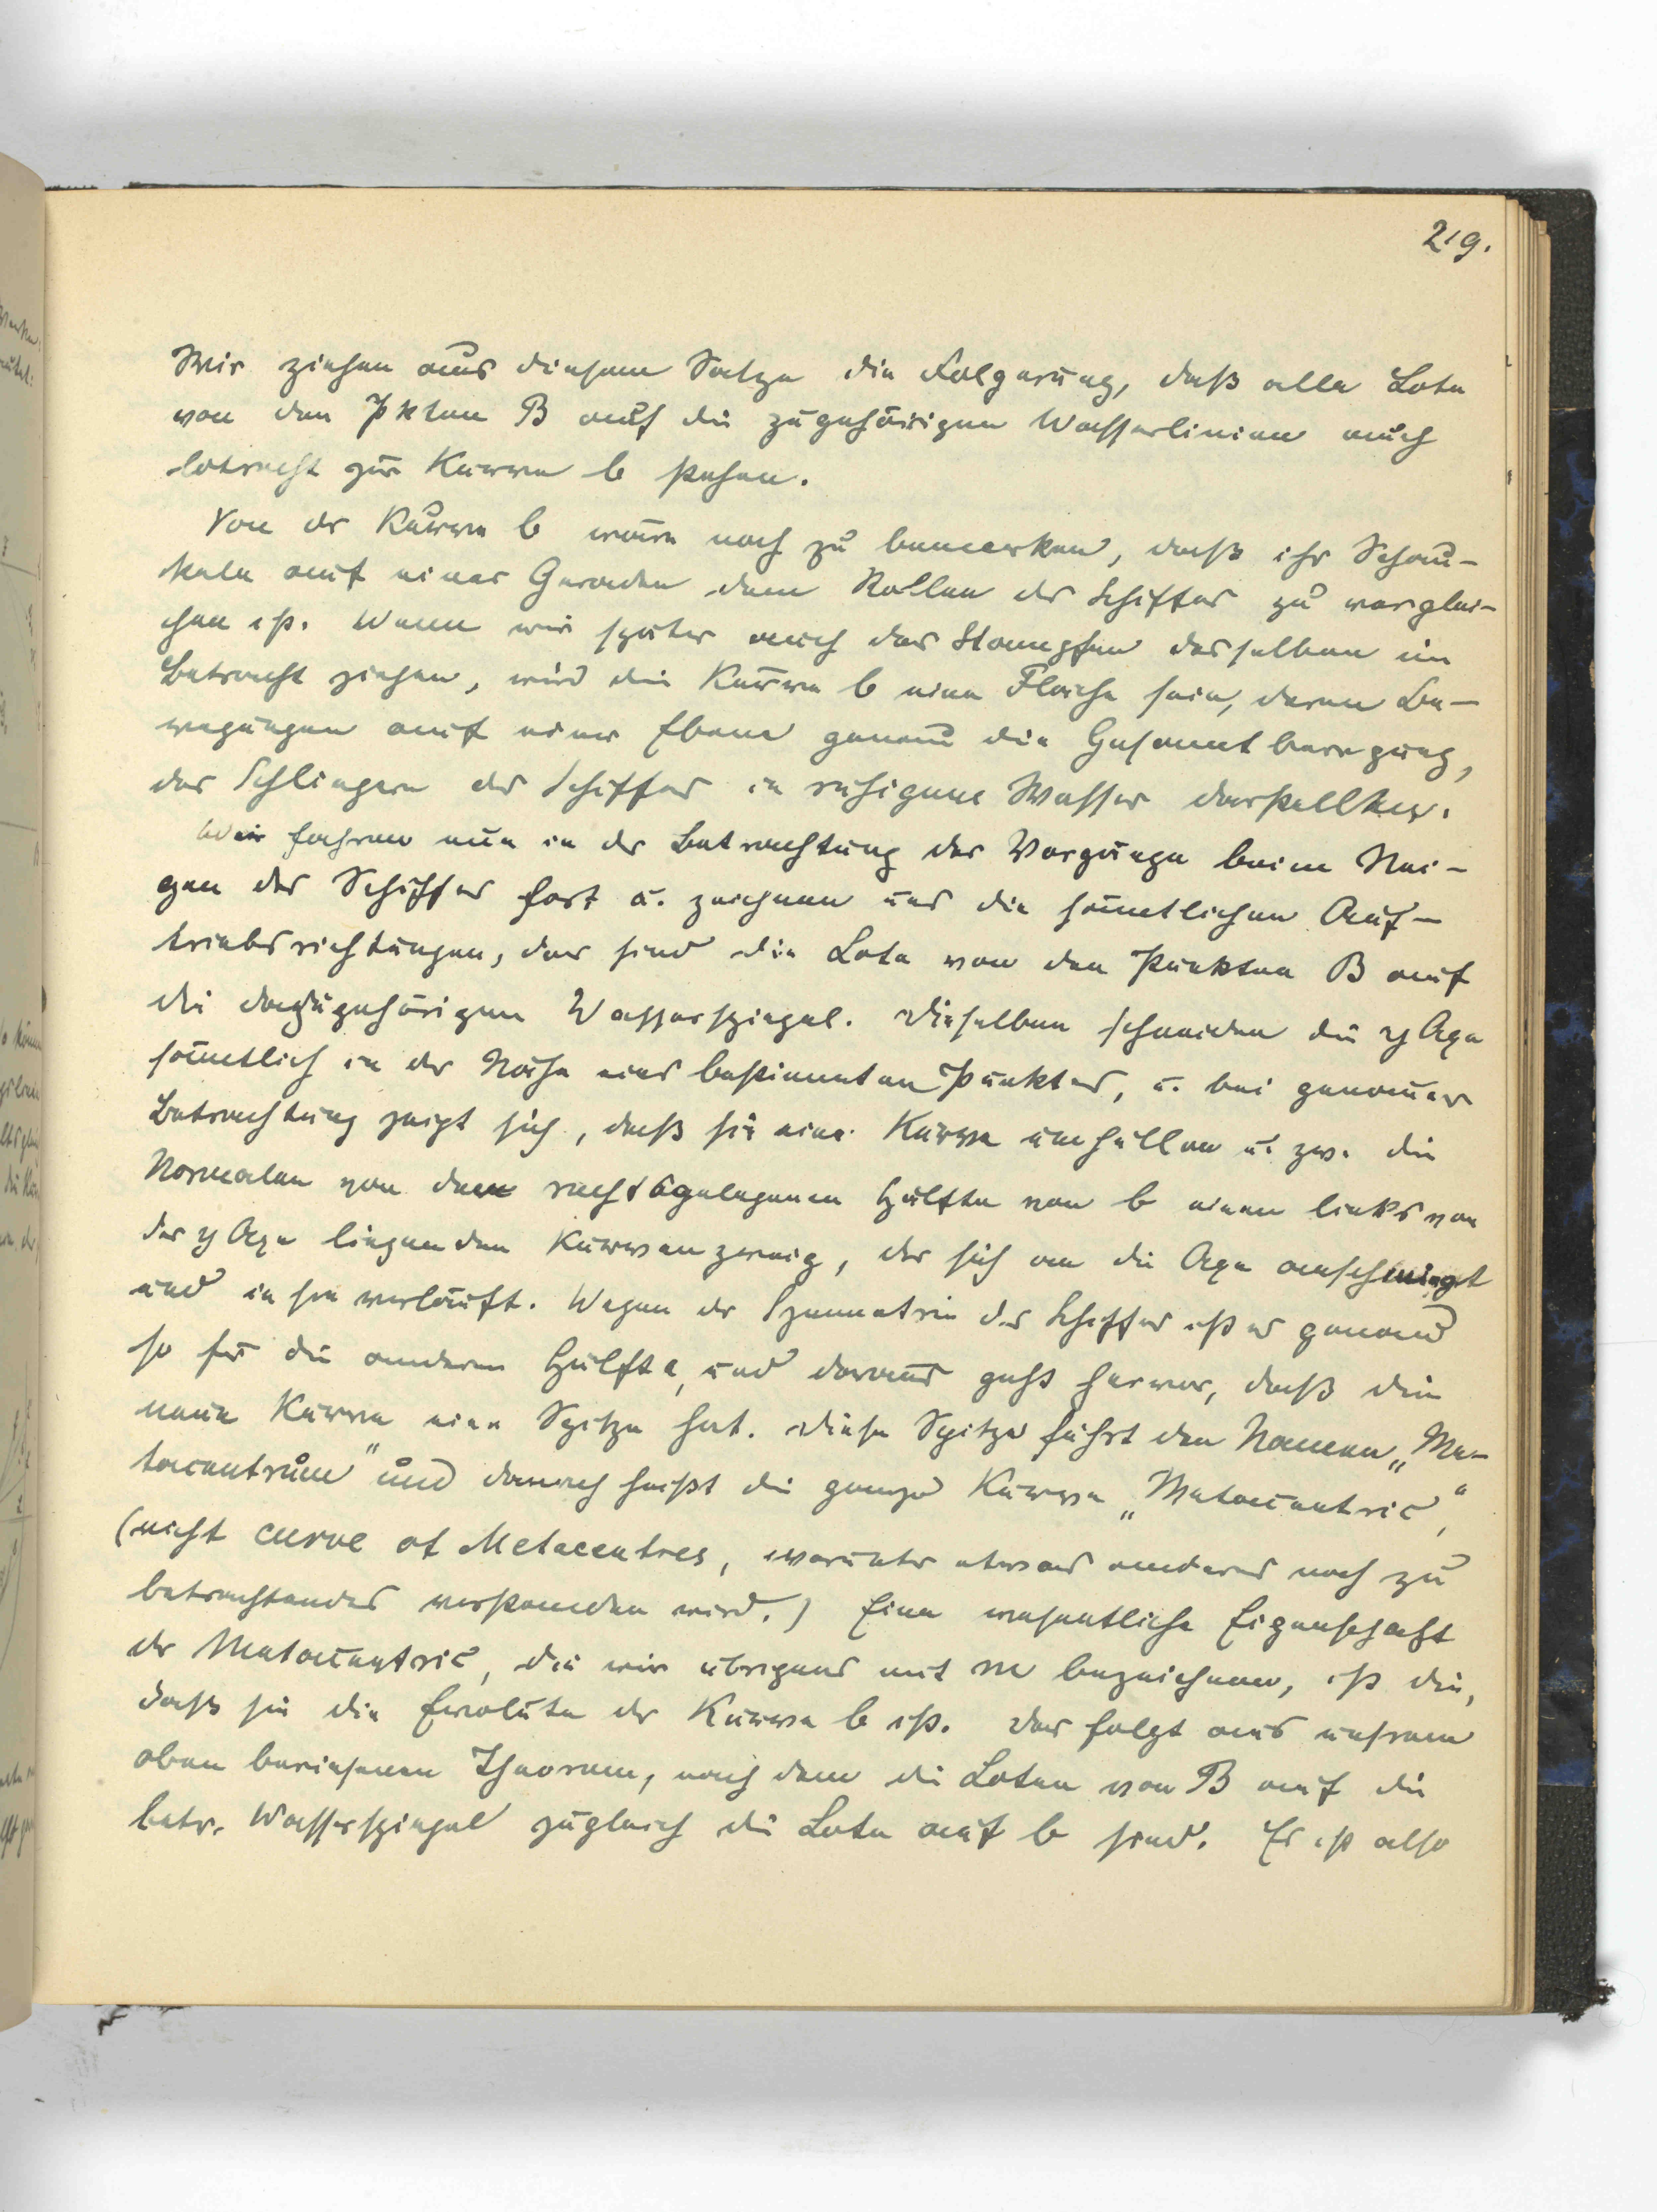 219.
Wir ziehen aus diesem Satze die Folgerung, daß alle Lote
von den Pkten B auf die zugehörigen Wasserlinien auch
lotrecht zur Kurve b stehen.
Von der Kurve b wäre noch zu bemerken, daß ihr Schau-
keln auf einer Geraden dem Rollen des Schiffes zu verglei-
chen ist. Wenn wir später auch das Stampfen desselben in
Betracht ziehen, wird die Kurve b eine Fläche sein, deren Be-
wegungen auf einer Ebene genau die Gesamtbewegung,
das Schlingern des Schiffes in ruhigem Wasser darstellten.
Wir fahren nun in der Betrachtung der Vorgänge beim Nei-
gen des Schiffes fort u. zeichnen uns die sämtlichen Auf-
triebsrichtungen, das sind die Lote von den Punkten B auf
die dazugehörigen Wasserspiegel. Dieselben schneiden die y Axe
sämtlich in der Nähe eines bestimmten Punktes, u. bei genauer
Betrachtung zeigt sich, daß sie eine Kurve umhüllen u. zw. die
Normalen von der rechts gelegenen Hälfte von b einen links von
der y Axe liegenden Kurvenzweig, der sich an die Axe anschmiegt
und in sie verläuft. Wegen der Symmetrie des Schiffes ist es genau
so für die anderen Hälfte, und daraus geht hervor, daß die
neue Kurve eine Spitze hat. Diese Spitze führt den Namen „Me-
tacentrum" und danach heißt die ganze Kurve „Metacentric",
(nicht curve of Metacentres, worunter etwas anderes noch zu
betrachtendes verstanden wird.) Eine wesentliche Eigenschaft
der Metacentric, die wir übrigens mit m bezeichnen, ist die,
daß sie die Evolute der Kurve b ist. Das folgt aus unsrem
oben bewiesenen Theorem, nach dem die Loten von B auf die
betr. Wasserspiegel zugleich die Lote auf b sind. Es ist also